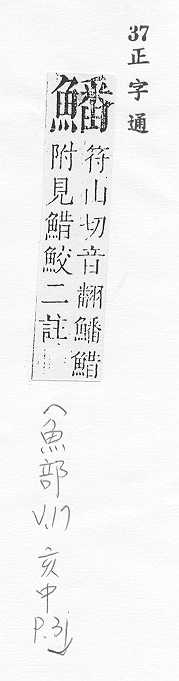 37正字通
鱕
符山切音翻鱕鯌
附見鯌鮫二註
(魚部
V.17 亥中
P.31